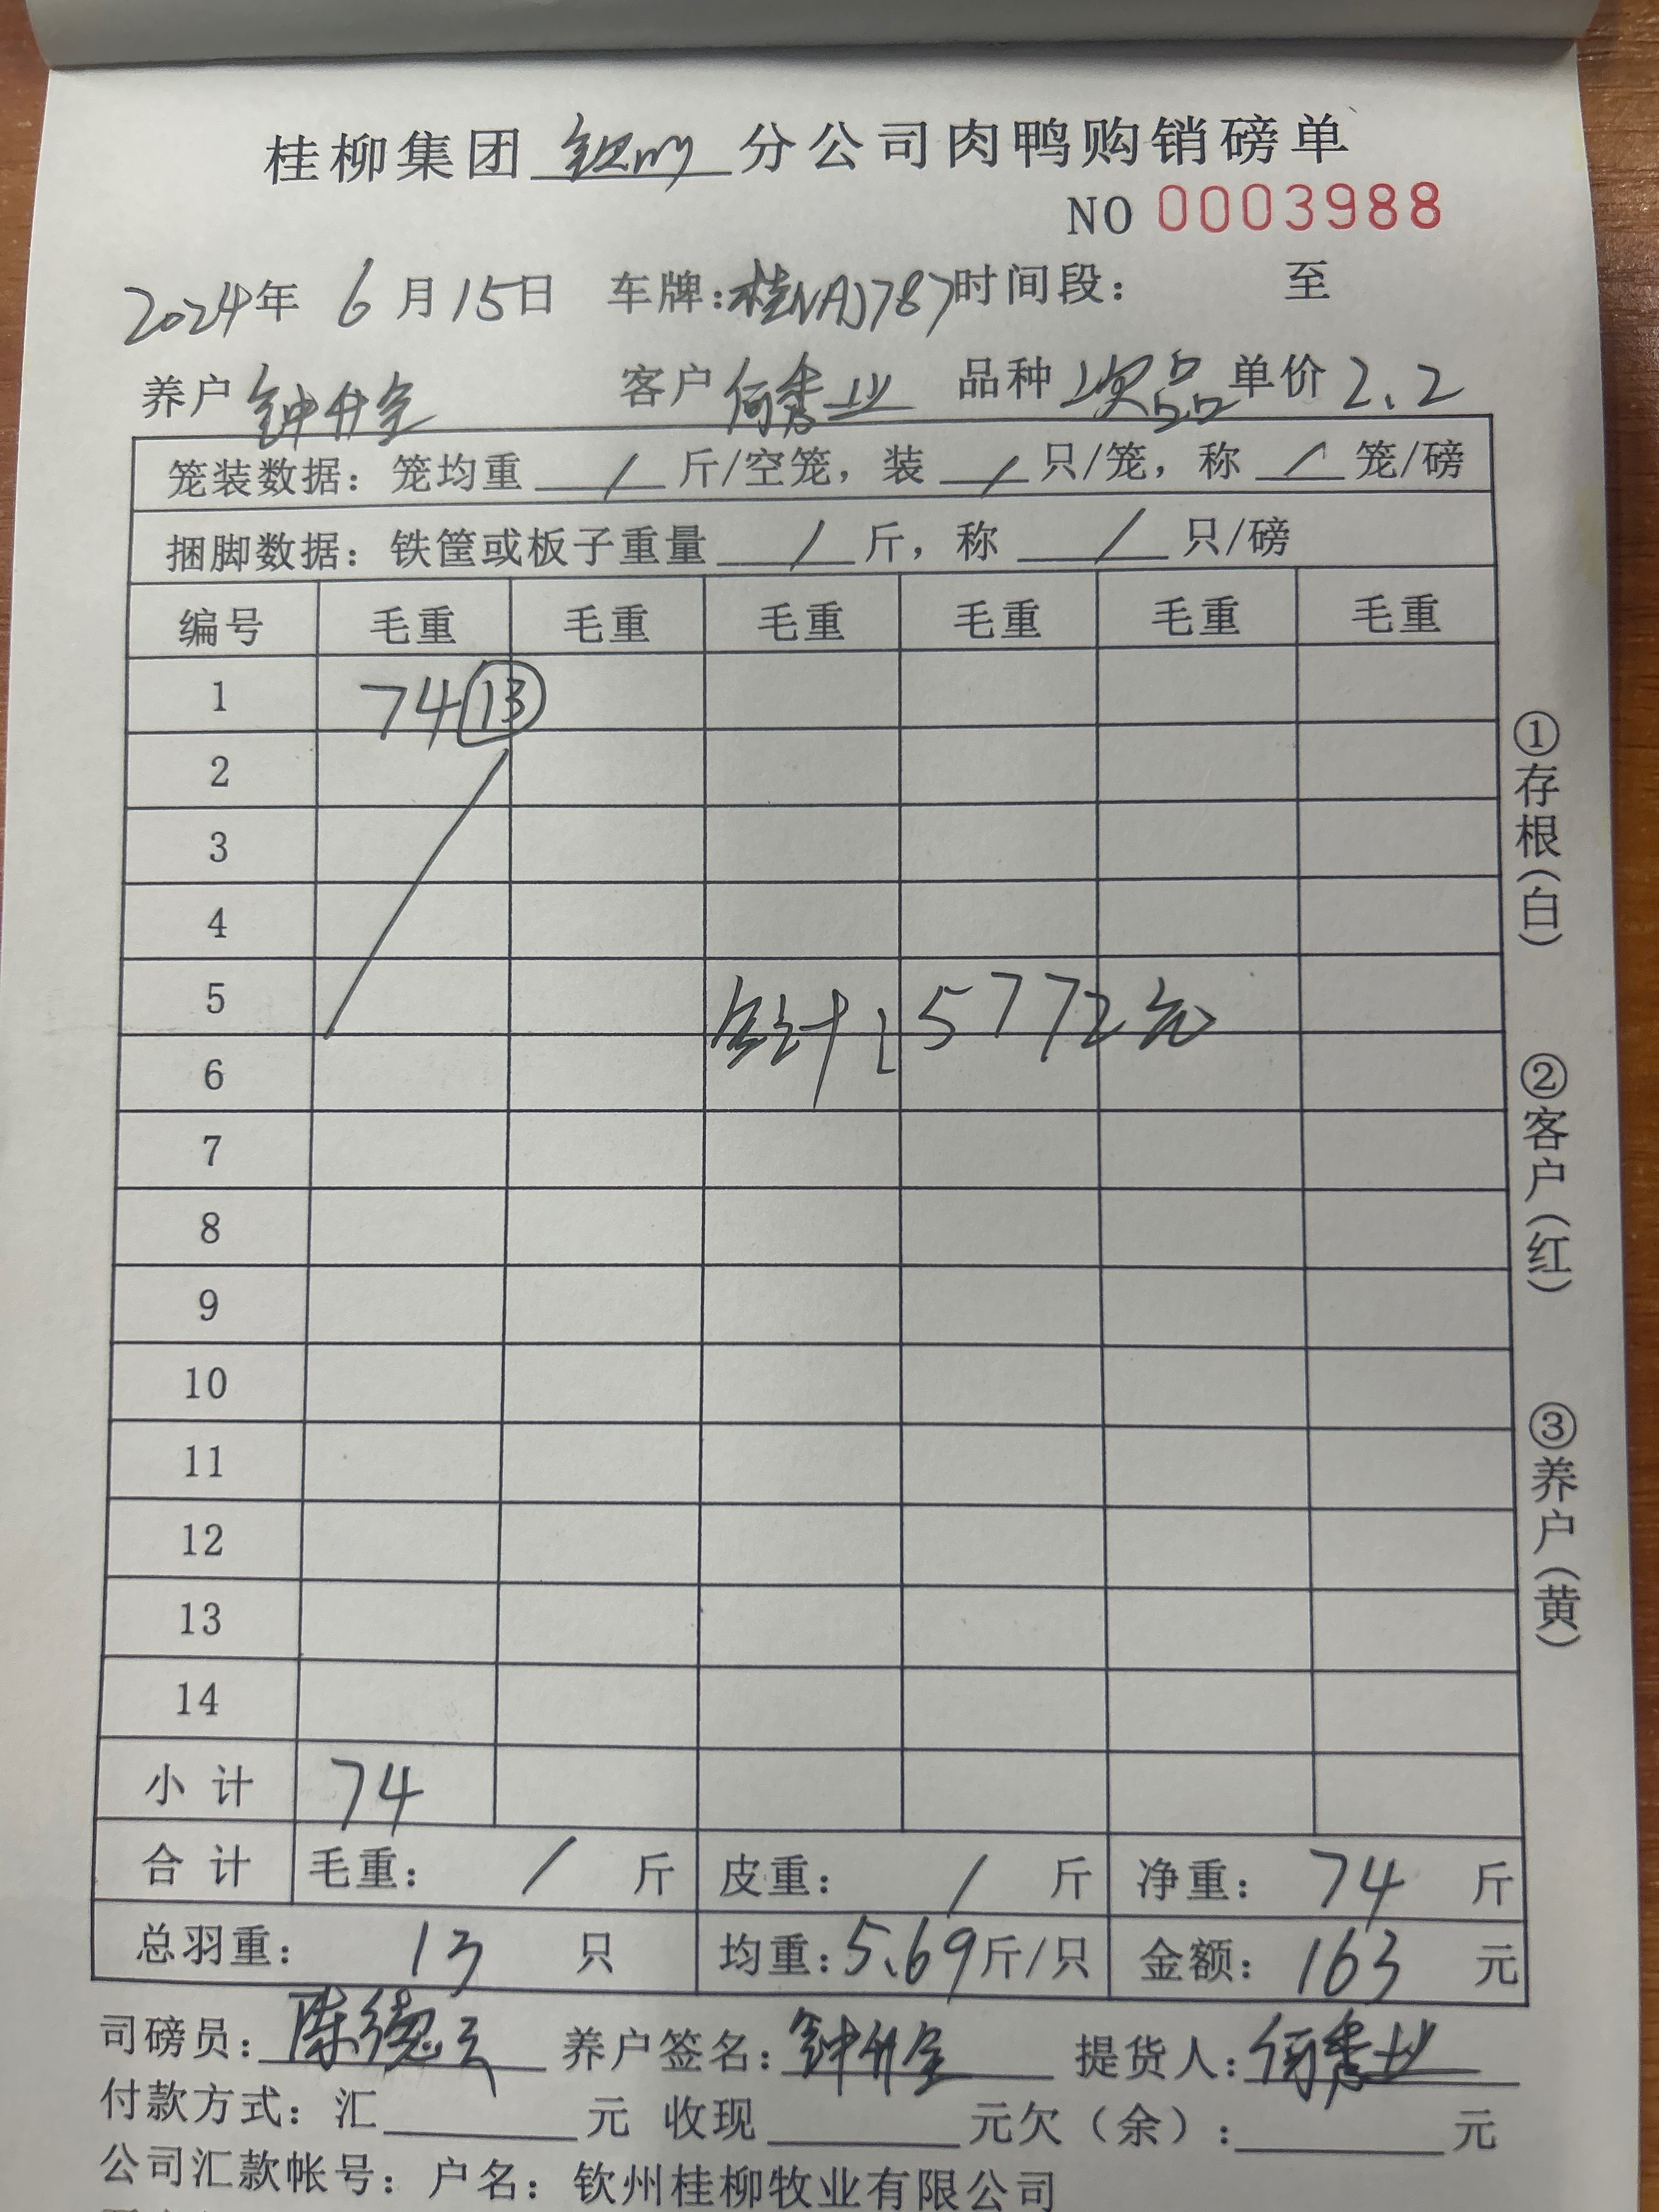 桂柳集团 钦州 分公司肉鸭购销磅单
NO 0003988
2024年 6月15日 车牌:桂NAJ787 时间段: 至
养户 钟升全 客户 何秀业 品种 次品 单价 2.2
笼装数据: 笼均重 / 斤/空笼, 装 / 只/笼, 称 / 笼/磅
捆脚数据: 铁筐或板子重量 / 斤, 称 / 只/磅
编号 毛重 毛重 毛重 毛重 毛重 毛重
1 74 ⑬
2
3
4
5 合计: 5772元
6
7
8
9
10
11
12
13
14
小计 74
合计 毛重: / 斤 皮重: / 斤 净重: 74 斤
总羽重: 13 只 均重: 5.69 斤/只 金额: 163 元
司磅员: 陈德云 养户签名: 钟升全 提货人: 何秀业
付款方式: 汇 元 收现 元欠(余): 元
公司汇款帐号: 户名: 钦州桂柳牧业有限公司
①存根(白)
②客户(红)
③养户(黄)